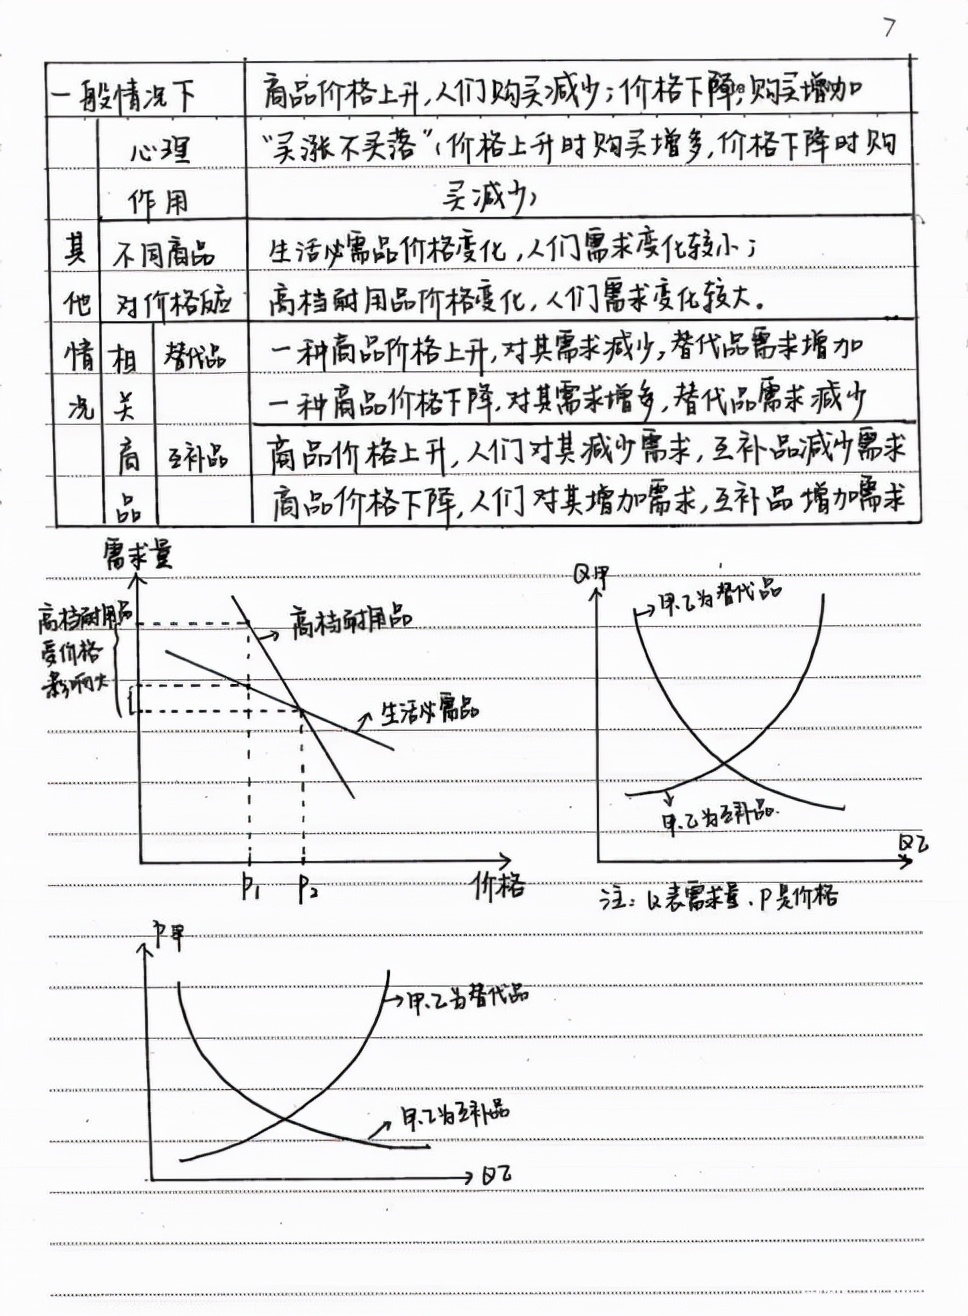 7
一般情况下 商品价格上升,人们购买减少;价格下降,购买增加
心理 “买涨不买落”(价格上升时购买增多,价格下降时购
作用 买减少)
其 不同商品 生活必需品价格变化,人们需求变化较小;
他 对价格反应 高档耐用品价格变化,人们需求变化较大。
情 相 替代品 一种商品价格上升,对其需求减少,替代品需求增加
况 关 一种商品价格下降,对其需求增多,替代品需求减少
商 互补品 商品价格上升,人们对其减少需求,互补品减少需求
品 商品价格下降,人们对其增加需求,互补品增加需求
需求量
高档耐用品
受价格
影响大
高档耐用品
生活必需品
P1 P2 价格
Q甲
甲、乙为替代品
甲、乙为互补品
Q乙
注:Q表需求量、P是价格
P甲
甲、乙为替代品
甲、乙为互补品
Q乙